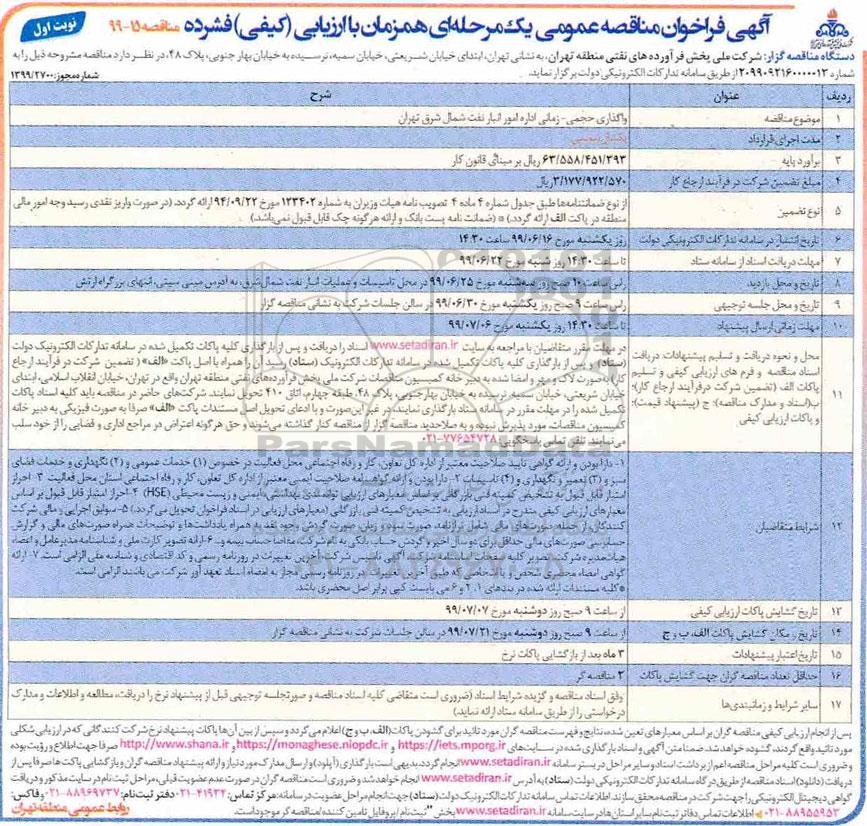 نوبت اول
آگهی فراخوان مناقصه عمومی یک مرحله‌ای همزمان با ارزیابی (کیفی) فشرده مناقصه ۱۵-۹۹
دستگاه مناقصه گزار: شرکت ملی پخش فرآورده های نفتی منطقه تهران، به نشانی تهران، ابتدای خیابان شریعتی، خیابان سمیه، نرسیده به خیابان بهار جنوبی، پلاک ۴۸، در نظر دارد مناقصه مشروحه ذیل را به
شماره ۲۰۹۹۰۹۲۱۶۰۰۰۰۰۱۳ از طریق سامانه تدارکات الکترونیکی دولت برگزار نماید.
شماره مجوز: ۱۳۹۹/۲۷۰۰
ردیف عنوان شرح
۱ موضوع مناقصه واگذاری حجمی- زمانی اداره امور انبار نفت شمال شرق تهران
۲ مدت اجرای قرارداد یکسال شمسی
۳ برآورد پایه ۶۳/۵۵۸/۴۵۱/۳۹۳ ریال بر مبنای قانون کار
۴ مبلغ تضمین شرکت در فرآیند ارجاع کار ۳/۱۷۷/۹۲۲/۵۷۰ ریال
۵ نوع تضمین از نوع ضمانتنامه‌ها طبق جدول شماره ۴ ماده ۴ تصویب نامه هیات وزیران به شماره ۱۲۳۴۰۲ مورخ ۹۴/۰۹/۲۲ ارائه گردد. (در صورت واریز نقدی رسید وجه امور مالی
منطقه در پاکت الف ارائه گردد.) * (ضمانت نامه پست بانک و ارائه هرگونه چک قابل قبول نمی‌باشد)
۶ تاریخ انتشار در سامانه تدارکات الکترونیکی دولت روز یکشنبه مورخ ۹۹/۰۶/۱۶ ساعت ۱۴:۳۰
۷ مهلت دریافت اسناد از سامانه ستاد تا ساعت ۱۴:۳۰ روز شنبه مورخ ۹۹/۰۶/۲۲
۸ تاریخ و محل بازدید راس ساعت ۱۰ صبح روز سه‌شنبه مورخ ۹۹/۰۶/۲۵ در محل تاسیسات و عملیات انبار نفت شمال شرق، به آدرس مینی سیتی، انتهای بزرگراه ارتش
۹ تاریخ و محل جلسه توجیهی راس ساعت ۹ صبح روز یکشنبه مورخ ۹۹/۰۶/۳۰ در سالن جلسات شرکت به نشانی مناقصه گزار
۱۰ مهلت زمانی ارسال پیشنهاد تا ساعت ۱۴:۳۰ روز یکشنبه مورخ ۹۹/۰۷/۰۶
۱۱ محل و نحوه دریافت و تسلیم پیشنهادات، دریافت
اسناد مناقصه و فرم های ارزیابی کیفی و تسلیم
پاکات الف (تضمین شرکت درفرآیند ارجاع کار)؛
ب(اسناد و مدارک مناقصه)؛ ج (پیشنهاد قیمت)؛
و پاکات ارزیابی کیفی
در مهلت مقرر متقاضیان با مراجعه به سایت www.setadiran.ir اسناد را دریافت و پس از بارگذاری کلیه پاکات تکمیل شده در سامانه تدارکات الکترونیک دولت
(ستاد) و پس از بارگذاری کلیه پاکات تکمیل شده در سامانه تدارکات الکترونیک (ستاد) رسید آن را همراه با اصل پاکت «الف» ( تضمین شرکت در فرآیند ارجاع
کار) به‌صورت لاک و مهر و امضا شده به دبیر خانه کمیسیون مناقصات شرکت ملی پخش فرآورده‌های نفتی منطقه تهران واقع در تهران، خیابان انقلاب اسلامی، ابتدای
خیابان شریعتی، خیابان سمیه، نرسیده به خیابان بهار جنوبی، پلاک ۴۸، طبقه چهارم، اتاق ۴۱۰ تحویل نمایند. شرکت‌های حاضر در مناقصه باید کلیه اسناد پاکات
تکمیل شده را در مهلت مقرر در سامانه ستاد بارگذاری نمایند، در غیر این‌صورت و با ادعای تحویل اصل مستندات پاکت «الف» صرفا به صورت فیزیکی به دبیر خانه
کمیسیون مناقصات، مورد پذیرش نبوده و به صلاحدید مناقصه گزار از مناقصه کنار گذاشته می‌شوند و حق هرگونه اعتراض در مراجع اداری و قضایی را از خود سلب
می‌نمایند. تلفن تماس پاسخگویی: ۷۷۶۵۴۷۲۸-۰۲۱
۱۲ شرایط متقاضیان
۱- دارا بودن و ارائه گواهی تایید صلاحیت معتبر از اداره کل تعاون، کار و رفاه اجتماعی محل فعالیت در خصوص (۱) خدمات عمومی و (۲) نگهداری و خدمات فضای
سبز و (۳) تعمیر و نگهداری و (۴) تاسیسات ۲- دارا بودن و ارائه گواهینامه صلاحیت ایمنی معتبر از اداره کل تعاون، کار و رفاه اجتماعی استان محل فعالیت ۳- احراز
امتیاز قابل قبول به تشخیص کمیته فنی بازرگانی بر اساس معیارهای ارزیابی توانمندی بهداشتی، ایمنی و زیست محیطی (HSE) ۴- احراز امتیاز قابل قبول بر اساس
معیارهای ارزیابی کیفی مندرج در اسناد ارزیابی به تشخیص کمیته فنی بازرگانی (معیارهای ارزیابی در اسناد فراخوان تحویل می‌گردد.) ۵- سوابق اجرایی و مالی شرکت
۱۳ تاریخ گشایش پاکات ارزیابی کیفی از ساعت ۹ صبح روز دوشنبه مورخ ۹۹/۰۷/۰۷
۱۴ تاریخ و مکان گشایش پاکات الف، ب و ج از ساعت ۹ صبح روز دوشنبه مورخ ۹۹/۰۷/۲۱ در سالن جلسات شرکت به نشانی مناقصه گزار
۱۵ تاریخ اعتبار پیشنهادات ۳ ماه بعد از بازگشایی پاکات نرخ
۱۶ حداقل تعداد مناقصه گران جهت گشایش پاکات ۲ مناقصه گر
۱۷ سایر شرایط و زمانبندی‌ها وفق اسناد مناقصه و گزیده شرایط اسناد (ضروری است متقاضی کلیه اسناد مناقصه و صورتجلسه توجیهی قبل از پیشنهاد نرخ را دریافت، مطالعه و اطلاعات و مدارک
درخواستی را از طریق سامانه ستاد ارائه نماید)
پس از انجام ارزیابی کیفی مناقصه گران بر اساس معیارهای تعیین شده، نتایج و فهرست مناقصه گران مورد تائید برای گشودن پاکات (الف، ب و ج) اعلام می‌گردد و سپس از بین آن‌ها پاکات پیشنهاد نرخ شرکت کنندگانی که در ارزیابی شکلی
مورد تائید واقع گردند، گشوده خواهد شد. ضمنا متن آگهی و اسناد بارگذاری شده در سایت‌های https://iets.mporg.ir و https://monaghese.niopdc.ir و http://www.shana.ir صرفا جهت اطلاع و رؤیت بوده
و ضروری است کلیه مراحل مناقصه اعم از برداشت اسناد و سایر مراحل در بستر سامانه www.setadiran.ir انجام گردد.
www.setadiran.ir
مرکز تماس: ۴۱۹۳۴-۰۲۱ دفتر ثبت نام: ۸۸۹۶۹۷۳۷-۰۲۱ و فاکس:
۸۸۹۵۵۹۵۳-۰۲۱ اطلاعات تماس دفاتر ثبت نام سایر استان ها در سایت سامانه www.setadiran.ir بخش "ثبت نام / پروفایل تامین کننده / مناقصه گر موجود است.
روابط عمومی منطقه تهران
ParsNamadData